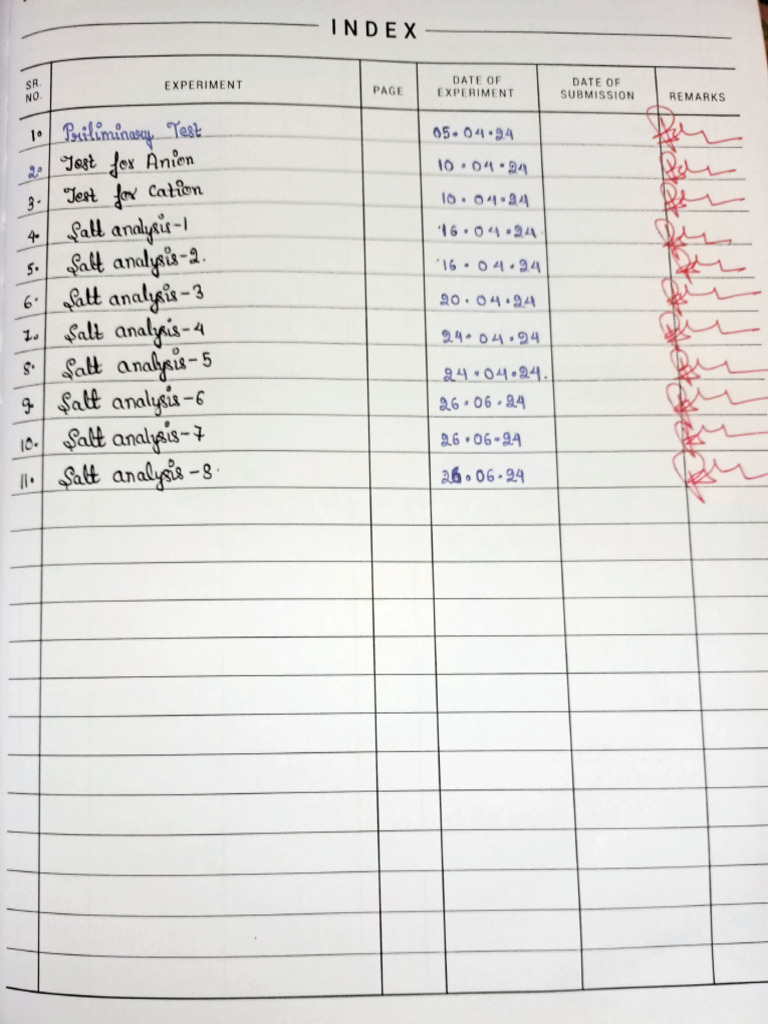 INDEX
SR. NO. EXPERIMENT PAGE DATE OF EXPERIMENT DATE OF SUBMISSION REMARKS
1. Priliminary Test 05.04.24
2. Test for Anion 10.04.24
3. Test for Cation 10.04.24
4. Salt analysis-1 16.04.24
5. Salt analysis-2. 16.04.24
6. Salt analysis-3 20.04.24
7. Salt analysis-4 24.04.24
8. Salt analysis-5 24.04.24.
9. Salt analysis-6 26.06.24
10. Salt analysis-7 26.06.24
11. Salt analysis-8. 26.06.24